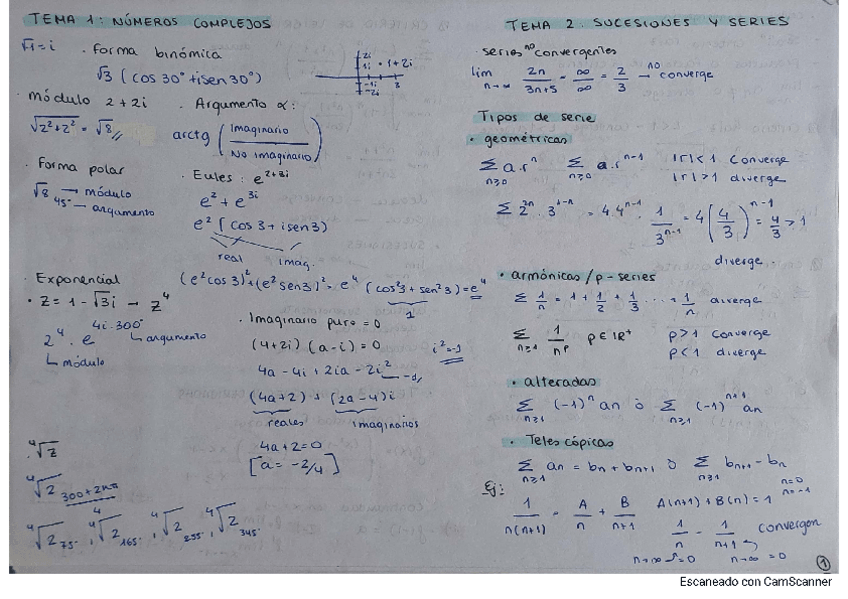 TEMA 1: NÚMEROS COMPLEJOS
√-1 = i · Forma binómica
√3 (cos 30° + isen 30°)
2i
1i · 1+2i
-1i
-2i
3
módulo 2+2i · Argumento α:
√2²+2² = √8 arctg (Imaginario / No imaginario)
· Forma polar
√8 → módulo
45° → argumento
· Eules: e^2+3i
e² + e^3i
e² [cos 3 + isen 3)
real imag.
· Exponencial (e² cos 3)² + (e² sen 3)² = e⁴ (cos² 3 + sen² 3) = e⁴
1
· Z = 1 - √3 i → Z⁴
2⁴ · e^4i·300°
argumento
módulo
· Imaginario puro = 0
(4+2i) (a-i) = 0 i² = -1
4a - 4i + 2ia - 2i² → -1
(4a+2) + (2a-4)i
reales imaginarios
4a+2 = 0
[a = -2/4]
· ⁴√z
⁴√2 300+2kπ
⁴√2 75°, ⁴√2 165°, ⁴√2 255°, ⁴√2 345°
TEMA 2. SUCESIONES Y SERIES
· series no convergentes
lim n→∞ 2n / 3n+5 = ∞/∞ = 2/3 → no converge
Tipos de serie
· geométricas
Σ n≥0 a.rⁿ Σ n≥0 a.r^n-1 |r|<1 converge
|r|>1 diverge
Σ 2^2n · 3^1-n = 4·4^n-1 · 1/3^n-1 = 4 (4/3)^n-1 = 4/3 > 1
diverge
· armónicas / p-series
Σ 1/n = 1 + 1/2 + 1/3 ... + 1/n diverge
Σ n≥1 1/n^p p ∈ ℝ⁺ p>1 converge
p<1 diverge
· alteradas
Σ n≥1 (-1)ⁿ an ò Σ n≥1 (-1)^n+1 an
· Teles cópicas
Σ n≥1 an = bn + bn+1 ò Σ n≥1 bn+1 - bn
n=0
n=-1
Ej: 1 / n(n+1) = A/n + B/n+1 A(n+1) + B(n) = 1
1/n - 1/n+1 convergen
n→∞ = 0 n→∞ = 0
1
Escaneado con CamScanner